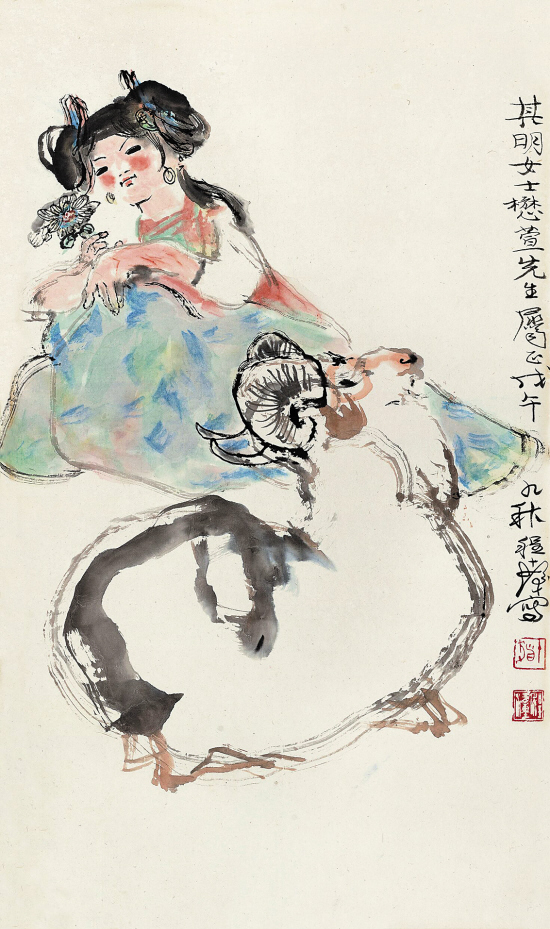 其明女士懋萱先生属正戊午
九秋程十发写